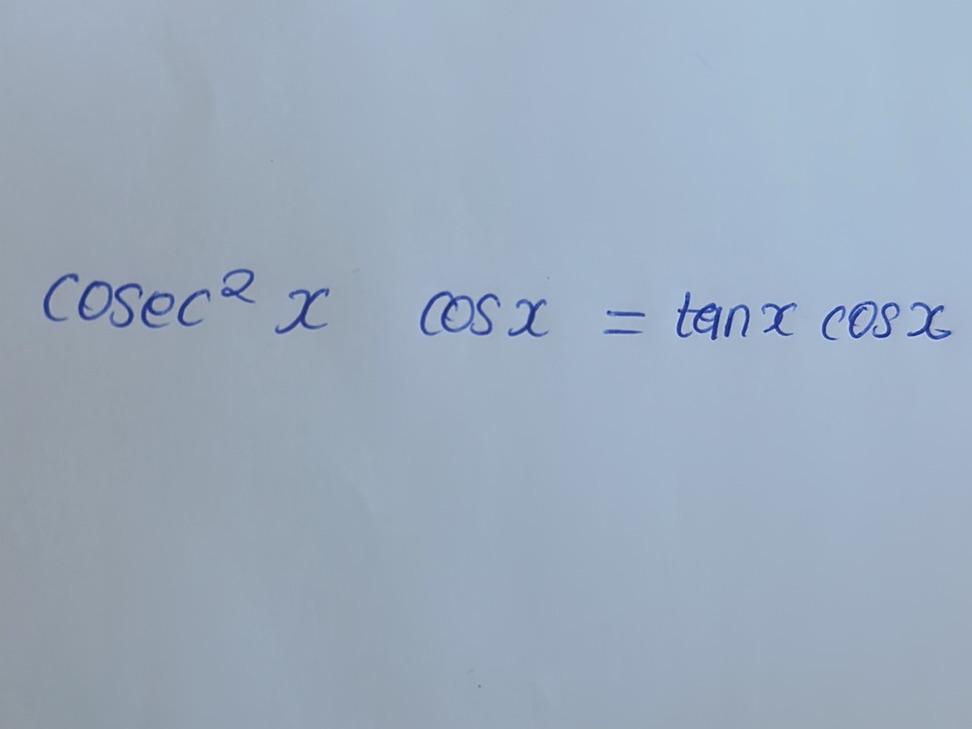 cosec² x cos x = tan x cos x